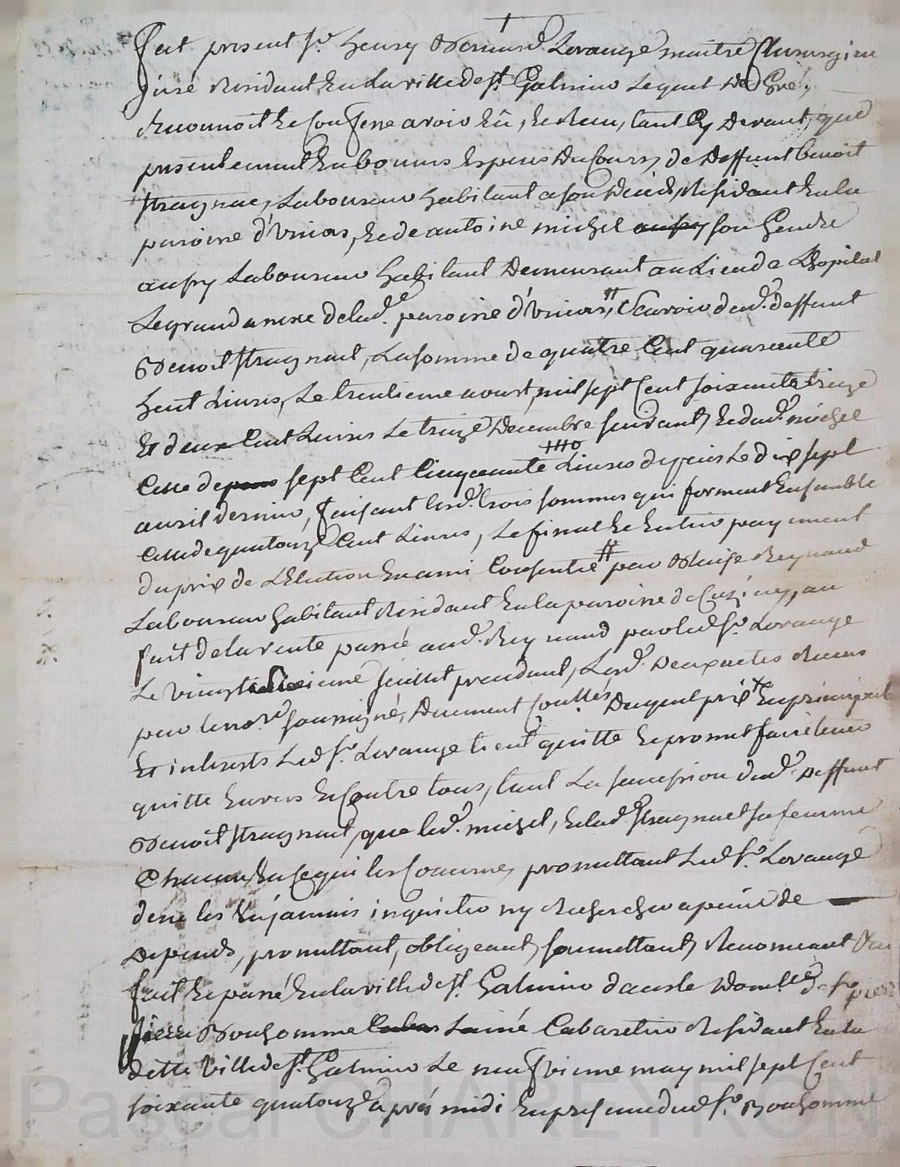 fut present Sr henry Bernard Lorange maitre Chirurgien
juré Residant En la ville de St Galmier Lequel De Gré,
Reconnoit Et Confesse avoir Eû, Et Reçu, tant Cy Devant, que
presentement En bonnes Espèces Du Cours, de Deffunt benoit
Stragnac, Laboureur habitant a son Décéds, Residant En la
paroisse d'unias, Et de antoine michel son Gendre
aussy Laboureur habitant Demeurant au Lieu de Lhopital
Legrand annexe de lad.e paroisse d'unias, Scavoir dud.t deffunt
Benoit Stragnait, La somme de quatre Cent quarante
huit Livres, Le trentieme aoust, mil sept Cent soixante treize
Et deux Cent Livres Le treize Decembre suivant, Et dud.t michel
Celle de sept Cent Cinquante Livres depuis Le dix sept
avril dernier, faisant lesd. trois sommes qui forment Ensemble
Celle de quatorze Cent Livres, Le final Et Entier payement
du prix de L'Election En ami Consentie par Blaise Reynaud
Laboureur habitant Residant En la paroisse de Cuzieu, au
fait de la vente passée aud.t Reynaud par led. Sr Lorange
Le vingt juillet precedant, Lesd. Deux actes Recus
par le no.re soussigné, Duement Conttes Duquel prix En principal
Et interets Led. Sr Lorange tient quitte Et promet faire tenir
quitte Envers Et Contre tous, tant La succession dud.t Deffunt
Benoit Stragnait, que led. michel, Et lad. Stragnait sa femme
Chacun En Ce qui les Concerne, promettant Led. Sr Lorange
de ne les En jamais inquieter ny Rechercher a peine de
Depends, promettant, obligeant, soumettant, Renonceant
fait Et passé En la ville de St Galmier dans le Domlle de Sr pierre
Bonhomme Lainé Cabaretier Residant En la
ditte Ville de St Galmier Le neufvieme may mil sept Cent
soixante quatorze après midi En presence dud. Sr Bonhomme
Pascal CHAREYRON